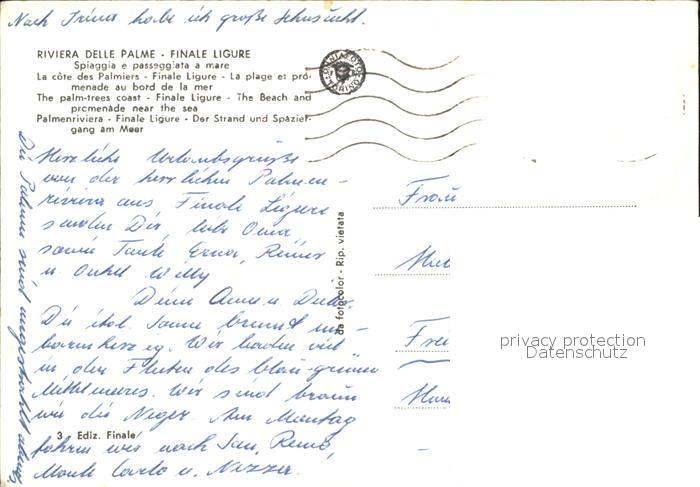 Nach Irina habe ich große Sehnsucht.
RIVIERA DELLE PALME - FINALE LIGURE
Spiaggia e passeggiata a mare
La côte des Palmiers - Finale Ligure - La plage et pro-
menade au bord de la mer
The palm-trees coast - Finale Ligure - The Beach and
promenade near the sea
Palmenriviera - Finale Ligure - Der Strand und Spazier-
gang am Meer
Herzliche Urlaubsgrüße
von der herrlichen Palmen-
riviera aus Finale Ligure
senden Dir, liebe Oma
sowie Tante Erna, Reiner
u. Onkel Willy
Deine Anne u. Dieter.
Die ital. Sonne brennt un-
barmherzig. Wir baden viel
in den Fluten des blau-grünen
Mittelmeeres. Wir sind braun
wie die Neger. Am Montag
fahren wir nach San Remo,
Monte Carlo u. Nizza.
Die Palmen sind
3 - Ediz. Finale
da fotocolor - Rip. vietata
TORINO
Frau
privacy protection
Datenschutz